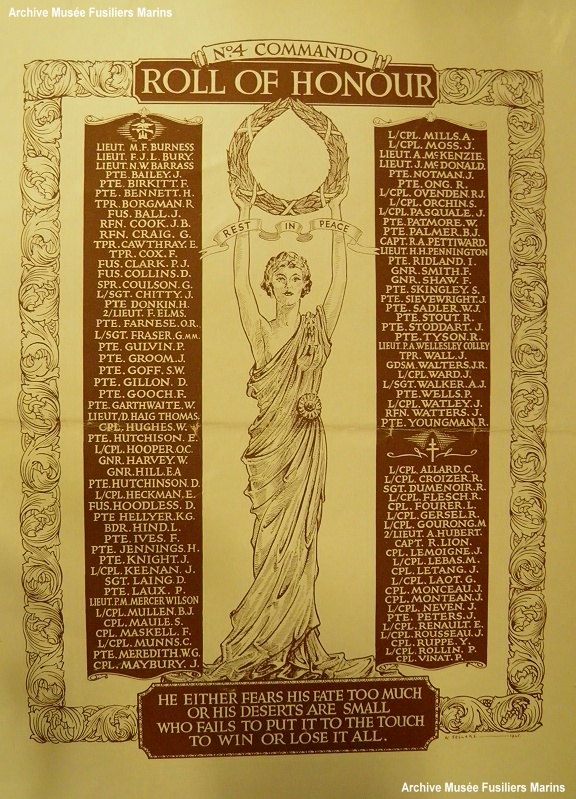 Archive Musée Fusiliers Marins
Nº.4 COMMANDO
ROLL OF HONOUR
REST IN PEACE
LIEUT. M.F. BURNESS
LIEUT. F.J.L. BURY.
LIEUT. N.W. BARRASS
PTE. BAILEY. J.
PTE. BIRKITT. F.
PTE. BENNETT. H.
TPR. BORGMAN. R
FUS. BALL. J.
RFN. COOK. J. B.
RFN. CRAIG. B.
TPR. CAWTHRAY. E.
TPR. COX. F.
FUS. CLARK. P.J.
FUS. COLLINS. D.
SPR. COULSON. G.
L/SGT. CHITTY. J.
PTE DONKIN. H.
2/LIEUT. F. ELMS.
PTE. FARNESE. O.R.
L/SGT. FRASER G.M.M.
PTE. GUILVIN. P.
PTE. GROOM. J.
PTE. GOFF. S.W.
PTE. GILLON. D.
PTE. GOOCH. F.
PTE. GARTHWAITE. W.
LIEUT. D. HAIG THOMAS.
CPL. HUGHES. W.
PTE. HUTCHISON. E.
L/CPL. HOOPER. O.C.
GNR. HARVEY. W.
GNR. HILL. E.A
PTE. HUTCHINSON. D.
L/CPL. HECKMAN. E.
FUS. HOODLESS. D.
PTE HELLYER. K.G.
BDR. HIND. L.
PTE. IVES. F.
PTE. JENNINGS. H.
PTE. KNIGHT. J.
L/CPL. KEENAN. J.
SGT. LAING. D.
PTE. LAUX. P.
LIEUT. P.M. MERCER WILSON
L/CPL. MULLEN. B.J.
CPL. MAULE. S.
CPL. MASKELL. F.
L/CPL. MUNNS. C.
PTE. MEREDITH. W.G.
CPL. MAYBURY. J.
L/CPL. MILLS. A.
L/CPL. MOSS. J.
LIEUT. A. McKENZIE.
LIEUT. J. McDONALD.
PTE. NOTMAN. J.
PTE. ONG. R.
L/CPL. OVENDEN. R.J.
L/CPL. ORCHIN. S.
L/CPL. PASQUALE. J.
PTE. PATMORE. W.
PTE. PALMER. B.J.
CAPT. R.A. PETTIWARD.
LIEUT. H.H. PENNINGTON
PTE. RIDLAND. I.
GNR. SMITH. F.
GNR. SHAW. F.
PTE. SKINGLEY. S.
PTE. SIEVEWRIGHT. J.
PTE. SADLER. W.J.
PTE. STOUT. R.
PTE. STODDART. J.
PTE. TYSON. R.
LIEUT P.A. WELLESLEY COLLEY
TPR. WALL. J.
GDSM. WALTERS. J.R.
L/CPL. WARD. J.
L/SGT. WALKER. A.J.
PTE. WELLS. P.
L/CPL. WATLEY. J.
RFN. WATTERS. J.
PTE. YOUNGMAN. R.
L/CPL. ALLARD. C.
L/CPL. CROIZER. R.
SGT. DUMENOIR. R.
L/CPL. FLESCH. R.
CPL. FOURER. L.
L/CPL. GERSEL. R.
L/CPL. GOURONG. M
2/LIEUT. A. HUBERT.
CAPT. R. LION.
CPL. LEMOIGNE. J.
L/CPL. LEBAS. M.
CPL. LETANG. J.
L/CPL. LAOT. G.
CPL. MONCEAU. J.
CPL. MONTEAN. J.
L/CPL. NEVEN. J.
PTE. PETERS. J.
L/CPL. RENAULT. E.
L/CPL. ROUSSEAU. J.
CPL. RUPPE. Y.
L/CPL. ROLLIN. P.
CPL. VINAT. P.
HE EITHER FEARS HIS FATE TOO MUCH
OR HIS DESERTS ARE SMALL
WHO FAILS TO PUT IT TO THE TOUCH
TO WIN OR LOSE IT ALL.
Archive Musée Fusiliers Marins